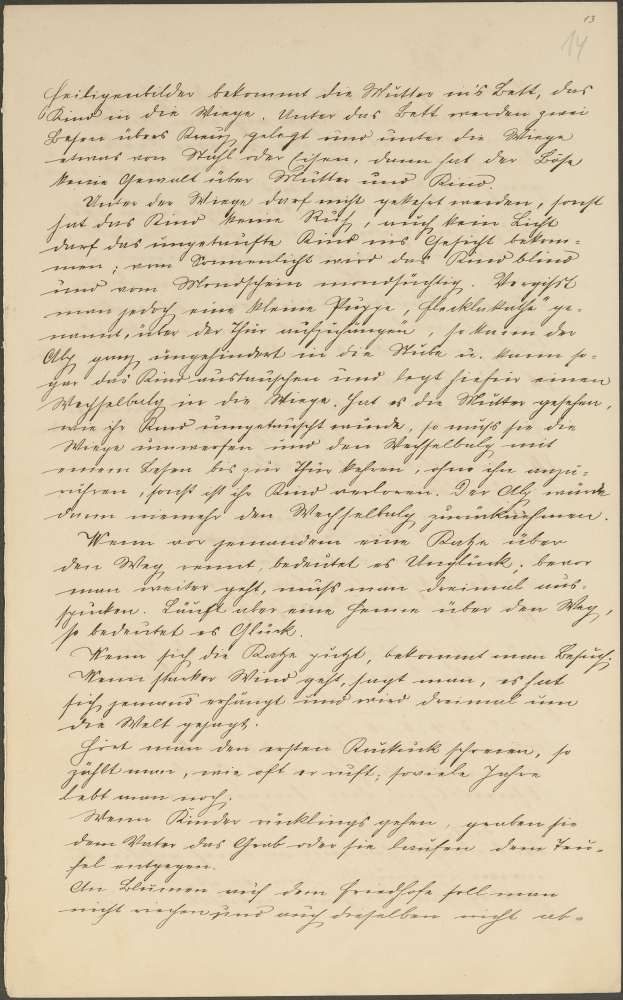 13
14
Heiligenbilder bekommt die Mutter in's Bett, das
Kind in die Wiege. Unter das Bett werden zwei
Besen übers Kreuz gelegt und unter die Wiege
etwas von Stahl oder Eisen, dann hat der Böse
keine Gewalt über Mutter und Kind.
Unter der Wiege darf nicht gekehrt werden, sonst
hat das Kind keine Ruh, auch kein Licht
darf das ungetaufte Kind ins Gesicht bekom-
men; vom Sonnenlicht wird das Kind blind
und vom Mondschein mondsüchtig. Vergißt
man jedoch eine kleine Puppe, " ge-
nannt, über der Thür aufzuhängen, so kann der
Alp ganz ungehindert in die Stube u. kann so-
gar das Kind austauschen und legt hiefür einen
Wechselbalg in die Wiege. Hat es die Mutter gesehen,
wie ihr Kind umgetauscht wurde, so muß sie die
Wiege umwerfen und den Wechselbalg mit
einem Besen bis zur Thür kehren, ohne ihn anzu-
rühren, sonst ist ihr Kind verloren. Der Alp würde
dann niemehr den Wechselbalg zurücknehmen.
Wenn vor jemandem eine Katze über
den Weg rennt, bedeutet es Unglück; bevor
man weiter geht, muß man dreimal aus-
spucken. Läuft aber eine Henne über den Weg,
so bedeutet es Glück.
Wenn sich die Katze putzt, bekommt man Besuch.
Wenn starker Wind geht, sagt man, es hat
sich jemand erhängt und wird dreimal um
die Welt gejagt.
Hört man den ersten Kuckuck schreien, so
zählt man, wie oft er ruft; soviele Jahre
lebt man noch.
Wenn Kinder rücklings gehen, graben sie
dem Vater das Grab oder sie laufen dem Teu-
fel entgegen.
An Blumen auf dem Friedhofe soll man
nicht riechen und auch dieselben nicht ab-